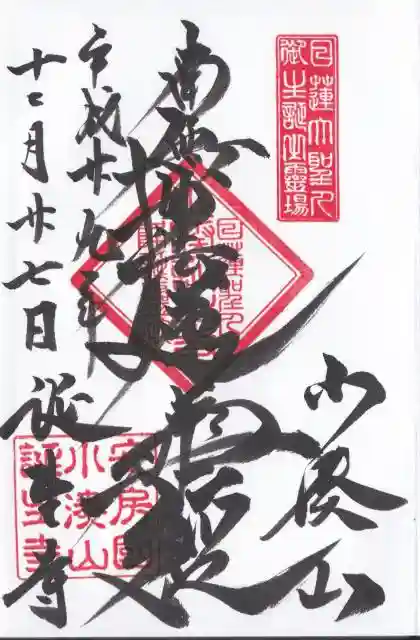 日蓮大聖人
御生誕之靈場
小湊山
南無妙法蓮華経
平成廿九年
十二月廿七日
誕生寺
安房國
小湊山
誕生寺